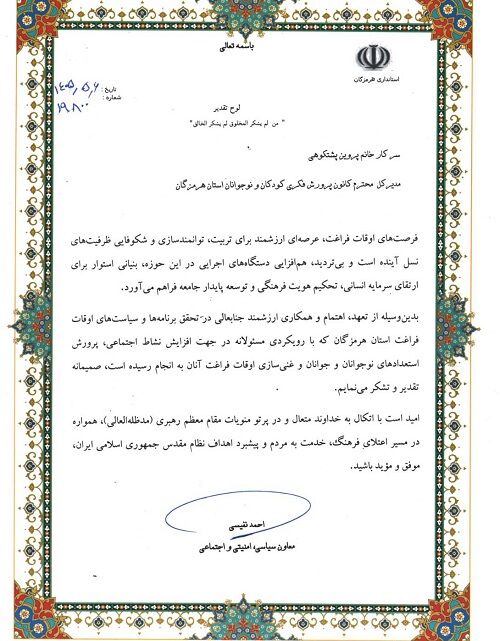 باسمه تعالی
استانداری هرمزگان
تاریخ : ۱۴۰۵/۵/۶
شماره : ۱۹۸۰۰
لوح تقدیر
" من لم یشکر المخلوق لم یشکر الخالق"
سرکار خانم پروین پشتکوهی
مدیرکل محترم کانون پرورش فکری کودکان و نوجوانان استان هرمزگان
فرصت‌های اوقات فراغت، عرصه‌ای ارزشمند برای تربیت، توانمندسازی و شکوفایی ظرفیت‌های
نسل آینده است و بی‌تردید، هم‌افزایی دستگاه‌های اجرایی در این حوزه، بنیانی استوار برای
ارتقای سرمایه انسانی، تحکیم هویت فرهنگی و توسعه پایدار جامعه فراهم می‌آورد.
بدین‌وسیله از تعهد، اهتمام و همکاری ارزشمند جنابعالی در تحقق برنامه‌ها و سیاست‌های اوقات
فراغت استان هرمزگان که با رویکردی مسئولانه در جهت افزایش نشاط اجتماعی، پرورش
استعدادهای نوجوانان و جوانان و غنی‌سازی اوقات فراغت آنان به انجام رسیده است، صمیمانه
تقدیر و تشکر می‌نمایم.
امید است با اتکال به خداوند متعال و در پرتو منویات مقام معظم رهبری (مدظله‌العالی)، همواره
در مسیر اعتلای فرهنگ، خدمت به مردم و پیشبرد اهداف نظام مقدس جمهوری اسلامی ایران،
موفق و مؤید باشید.
احمد نفیسی
معاون سیاسی، امنیتی و اجتماعی